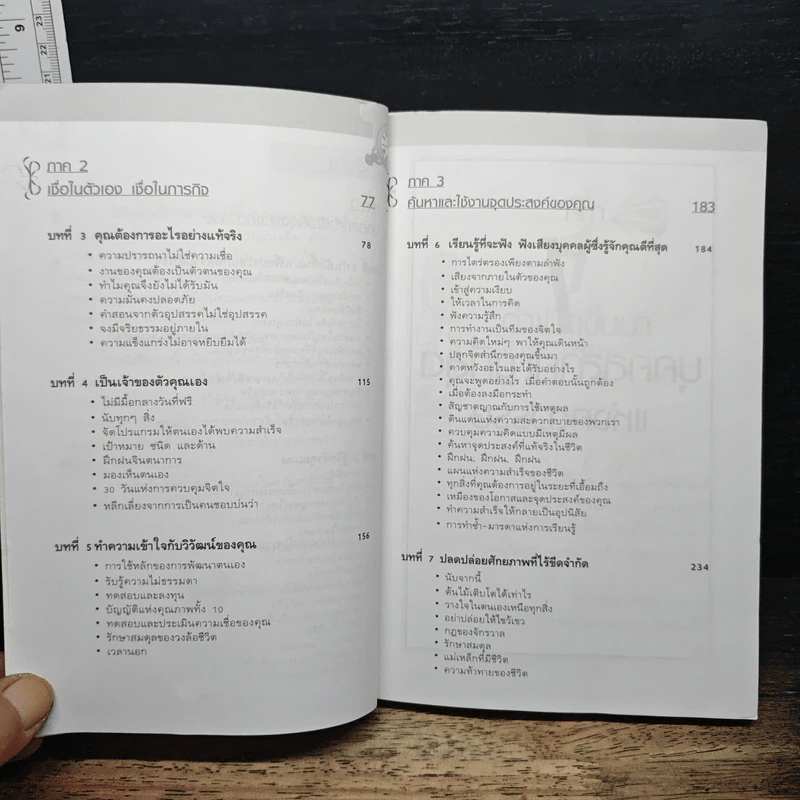 ภาค 2
เชื่อในตัวเอง เชื่อในภารกิจ 77
บทที่ 3 คุณต้องการอะไรอย่างแท้จริง 78
• ความปรารถนาไม่ใช่ความเชื่อ
• งานของคุณต้องเป็นตัวตนของคุณ
• ทำไมคุณจึงยังไม่ได้รับมัน
• ความมั่นคงปลอดภัย
• คำสอนจากตัวอุปสรรคไม่ใช่อุปสรรค
• จงมีจริยธรรมอยู่ภายใน
• ความแข็งแกร่งไม่อาจหยิบยืมได้
บทที่ 4 เป็นเจ้าของตัวคุณเอง 115
• ไม่มีมื้อกลางวันที่ฟรี
• นับทุกๆ สิ่ง
• จิตโปรแกรมให้ตนเองได้พบความสำเร็จ
• เป้าหมาย ชนิด และด้าน
• ฝึกฝนจินตนาการ
• มองเห็นตนเอง
• 30 วันแห่งการควบคุมจิตใจ
• หลีกเลี่ยงจากการเป็นคนชอบบ่นว่า
บทที่ 5 ทำความเข้าใจกับวิวัฒน์ของคุณ 156
• การใช้หลักของการพัฒนาตนเอง
• รับรู้ความไม่ธรรมดา
• ทดสอบและลงทุน
• บัญญัติแห่งคุณภาพทั้ง 10
• ทดสอบและประเมินความเชื่อของคุณ
• รักษาสมดุลของวงล้อชีวิต
• เวลานอก
ภาค 3
ค้นหาและใช้งานจุดประสงค์ของคุณ 183
บทที่ 6 เรียนรู้ที่จะฟัง ฟังเสียงบุคคลผู้ซึ่งรู้จักคุณดีที่สุด 184
• การไตร่ตรองเพียงตามลำพัง
• เสียงจากภายในตัวของคุณ
• เข้าสู่ความเงียบ
• ให้เวลาในการคิด
• ฟังความรู้สึก
• การทำงานเป็นทีมของจิตใจ
• ความคิดใหม่ๆ พาให้คุณเดินหน้า
• ปลุกจิตสำนึกของคุณขึ้นมา
• คาดหวังอะไรและได้รับอย่างไร
• คุณจะพูดอย่างไร เมื่อคำตอบนั้นถูกต้อง
• เมื่อต้องลงมือกระทำ
• สัญชาตญาณกับการใช้เหตุผล
• ดินแดนแห่งความสะดวกสบายของพวกเรา
• ควบคุมความคิดแบบมีเหตุมีผล
• ค้นหาจุดประสงค์ที่แท้จริงในชีวิต
• ฝึกฝน, ฝึกฝน, ฝึกฝน
• แผนแห่งความสำเร็จของชีวิต
• ทุกสิ่งที่คุณต้องการอยู่ในระยะที่เอื้อมถึง
• เหมืองของโอกาสและจุดประสงค์ของคุณ
• ทำความสำเร็จให้กลายเป็นอุปนิสัย
• การทำซ้ำ-มารดาแห่งการเรียนรู้
บทที่ 7 ปลดปล่อยศักยภาพที่ไร้ขีดจำกัด 234
• นับจากนี้
• ต้นไม้เติบโตได้เท่าไร
• วางใจในตนเองเหนือทุกสิ่ง
• อย่าปล่อยให้ไขว้เขว
• กฎของจักรวาล
• รักษาสมดุล
• แม่เหล็กที่มีชีวิต
• ความท้าทายของชีวิต
9
23
22
21